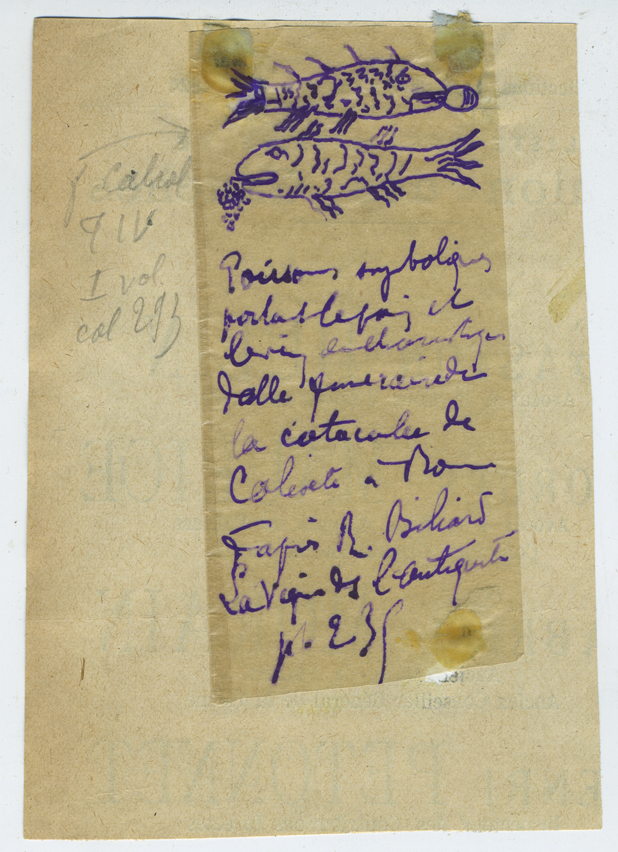 Cabrol
T IV
I vol.
col 293
Poissons symboliques
portant le pain et
le vin eucharistiques
dalle funeraire de
la catacombe de
Calixte a Rome
d'apres R. Billiard
La Vigne ds l'antiquité
p.